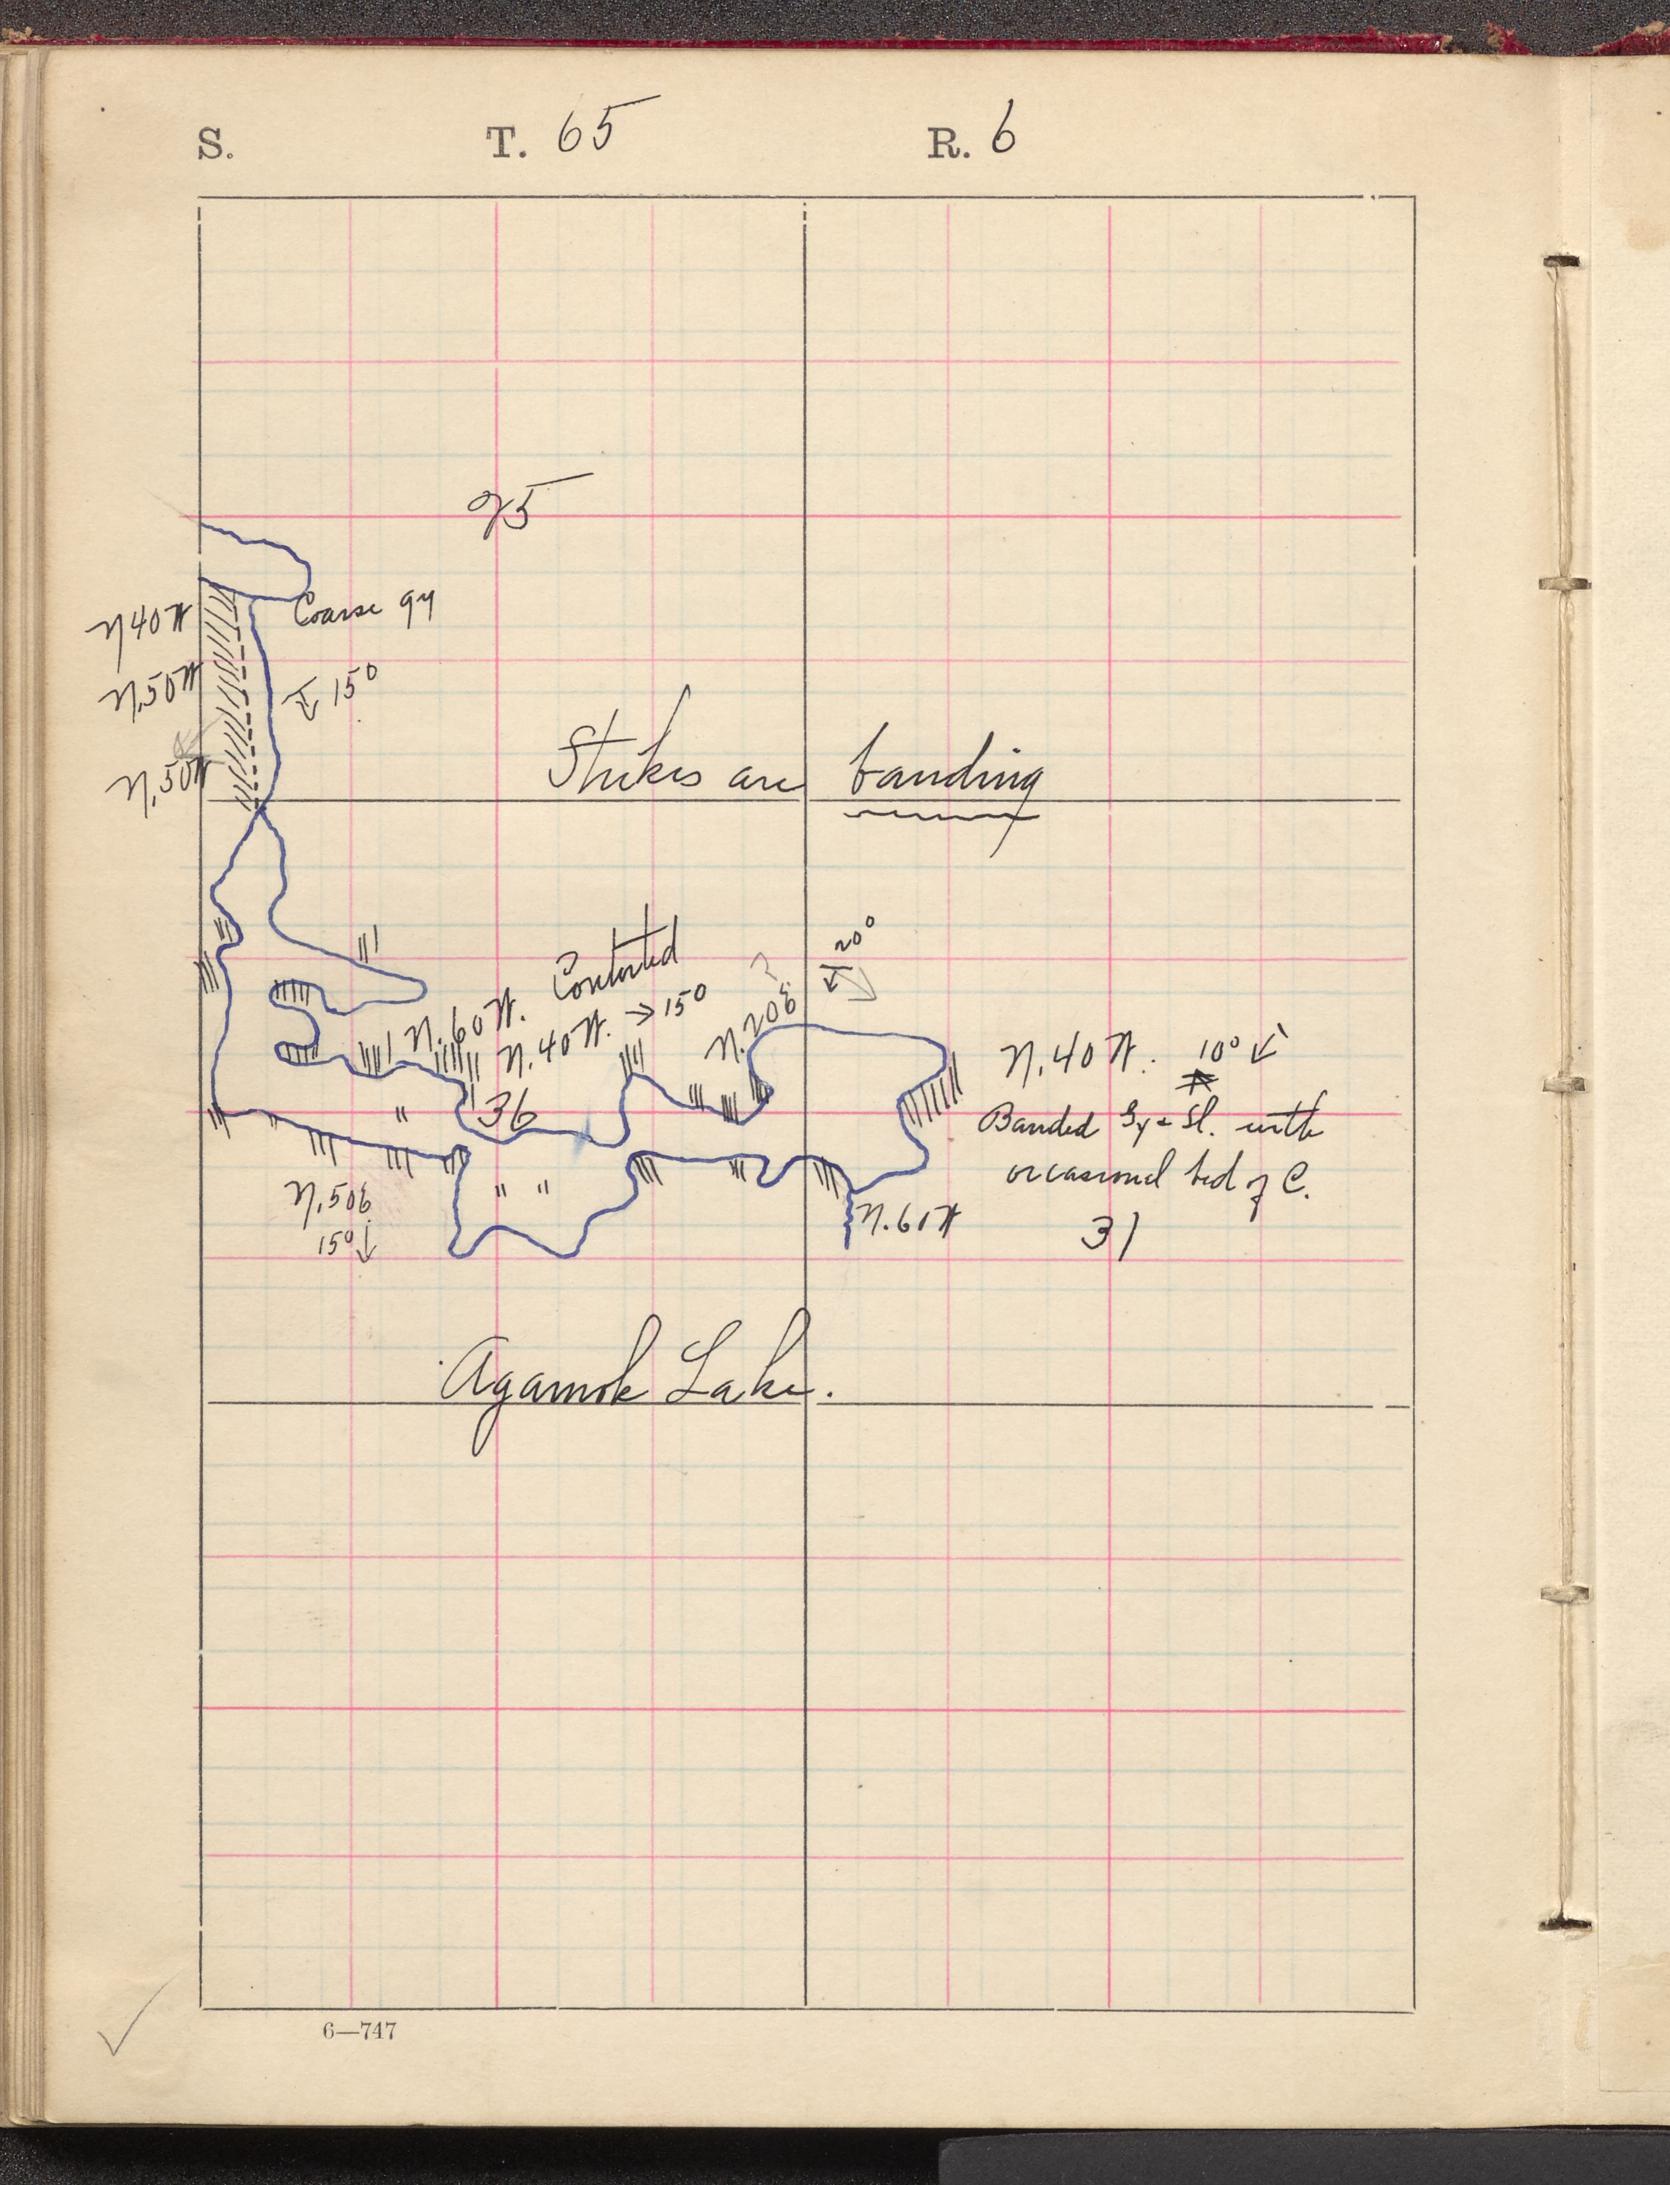 S. T. 65 R. 6
25
Coarse gy
N40W
15°
N.50W
N.50W
Strikes are banding
20°
Contorted
N.60W.
N.40W. → 15°
N.20E ?
N.40W. 10°
36
"
Banded Gy + Sl. with
occasional bed of C.
N.50E.
" "
15°
N.61W
31
Agamok Lake.
6—747